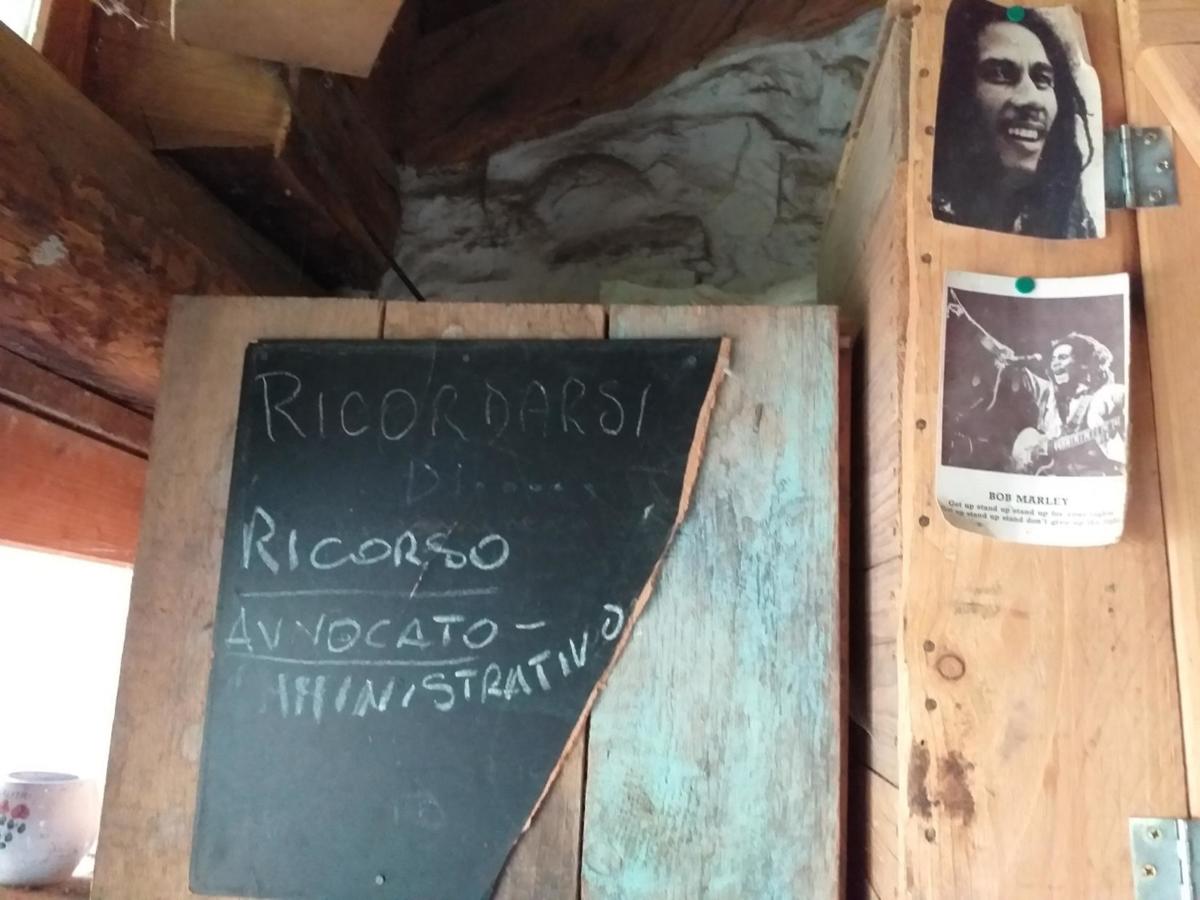 RICORDARSI
RICORSO
AVVOCATO -
AMINISTRATIVO
BOB MARLEY
Get up stand up stand up for your rights
up stand up stand don't give up the fight